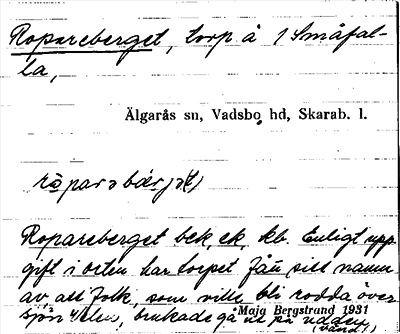 Ropareberget, torp å 1 Småfal-
la,
Älgarås sn, Vadsbo hd, Skarab. l.
Ropareberget bek, ek, kb. Enligt upp-
gift i orten har torpet fått sitt namn
av att folk, som ville bli rodda över
sjön Unden, brukade gå ut på udden
Maja Bergstrand 1931